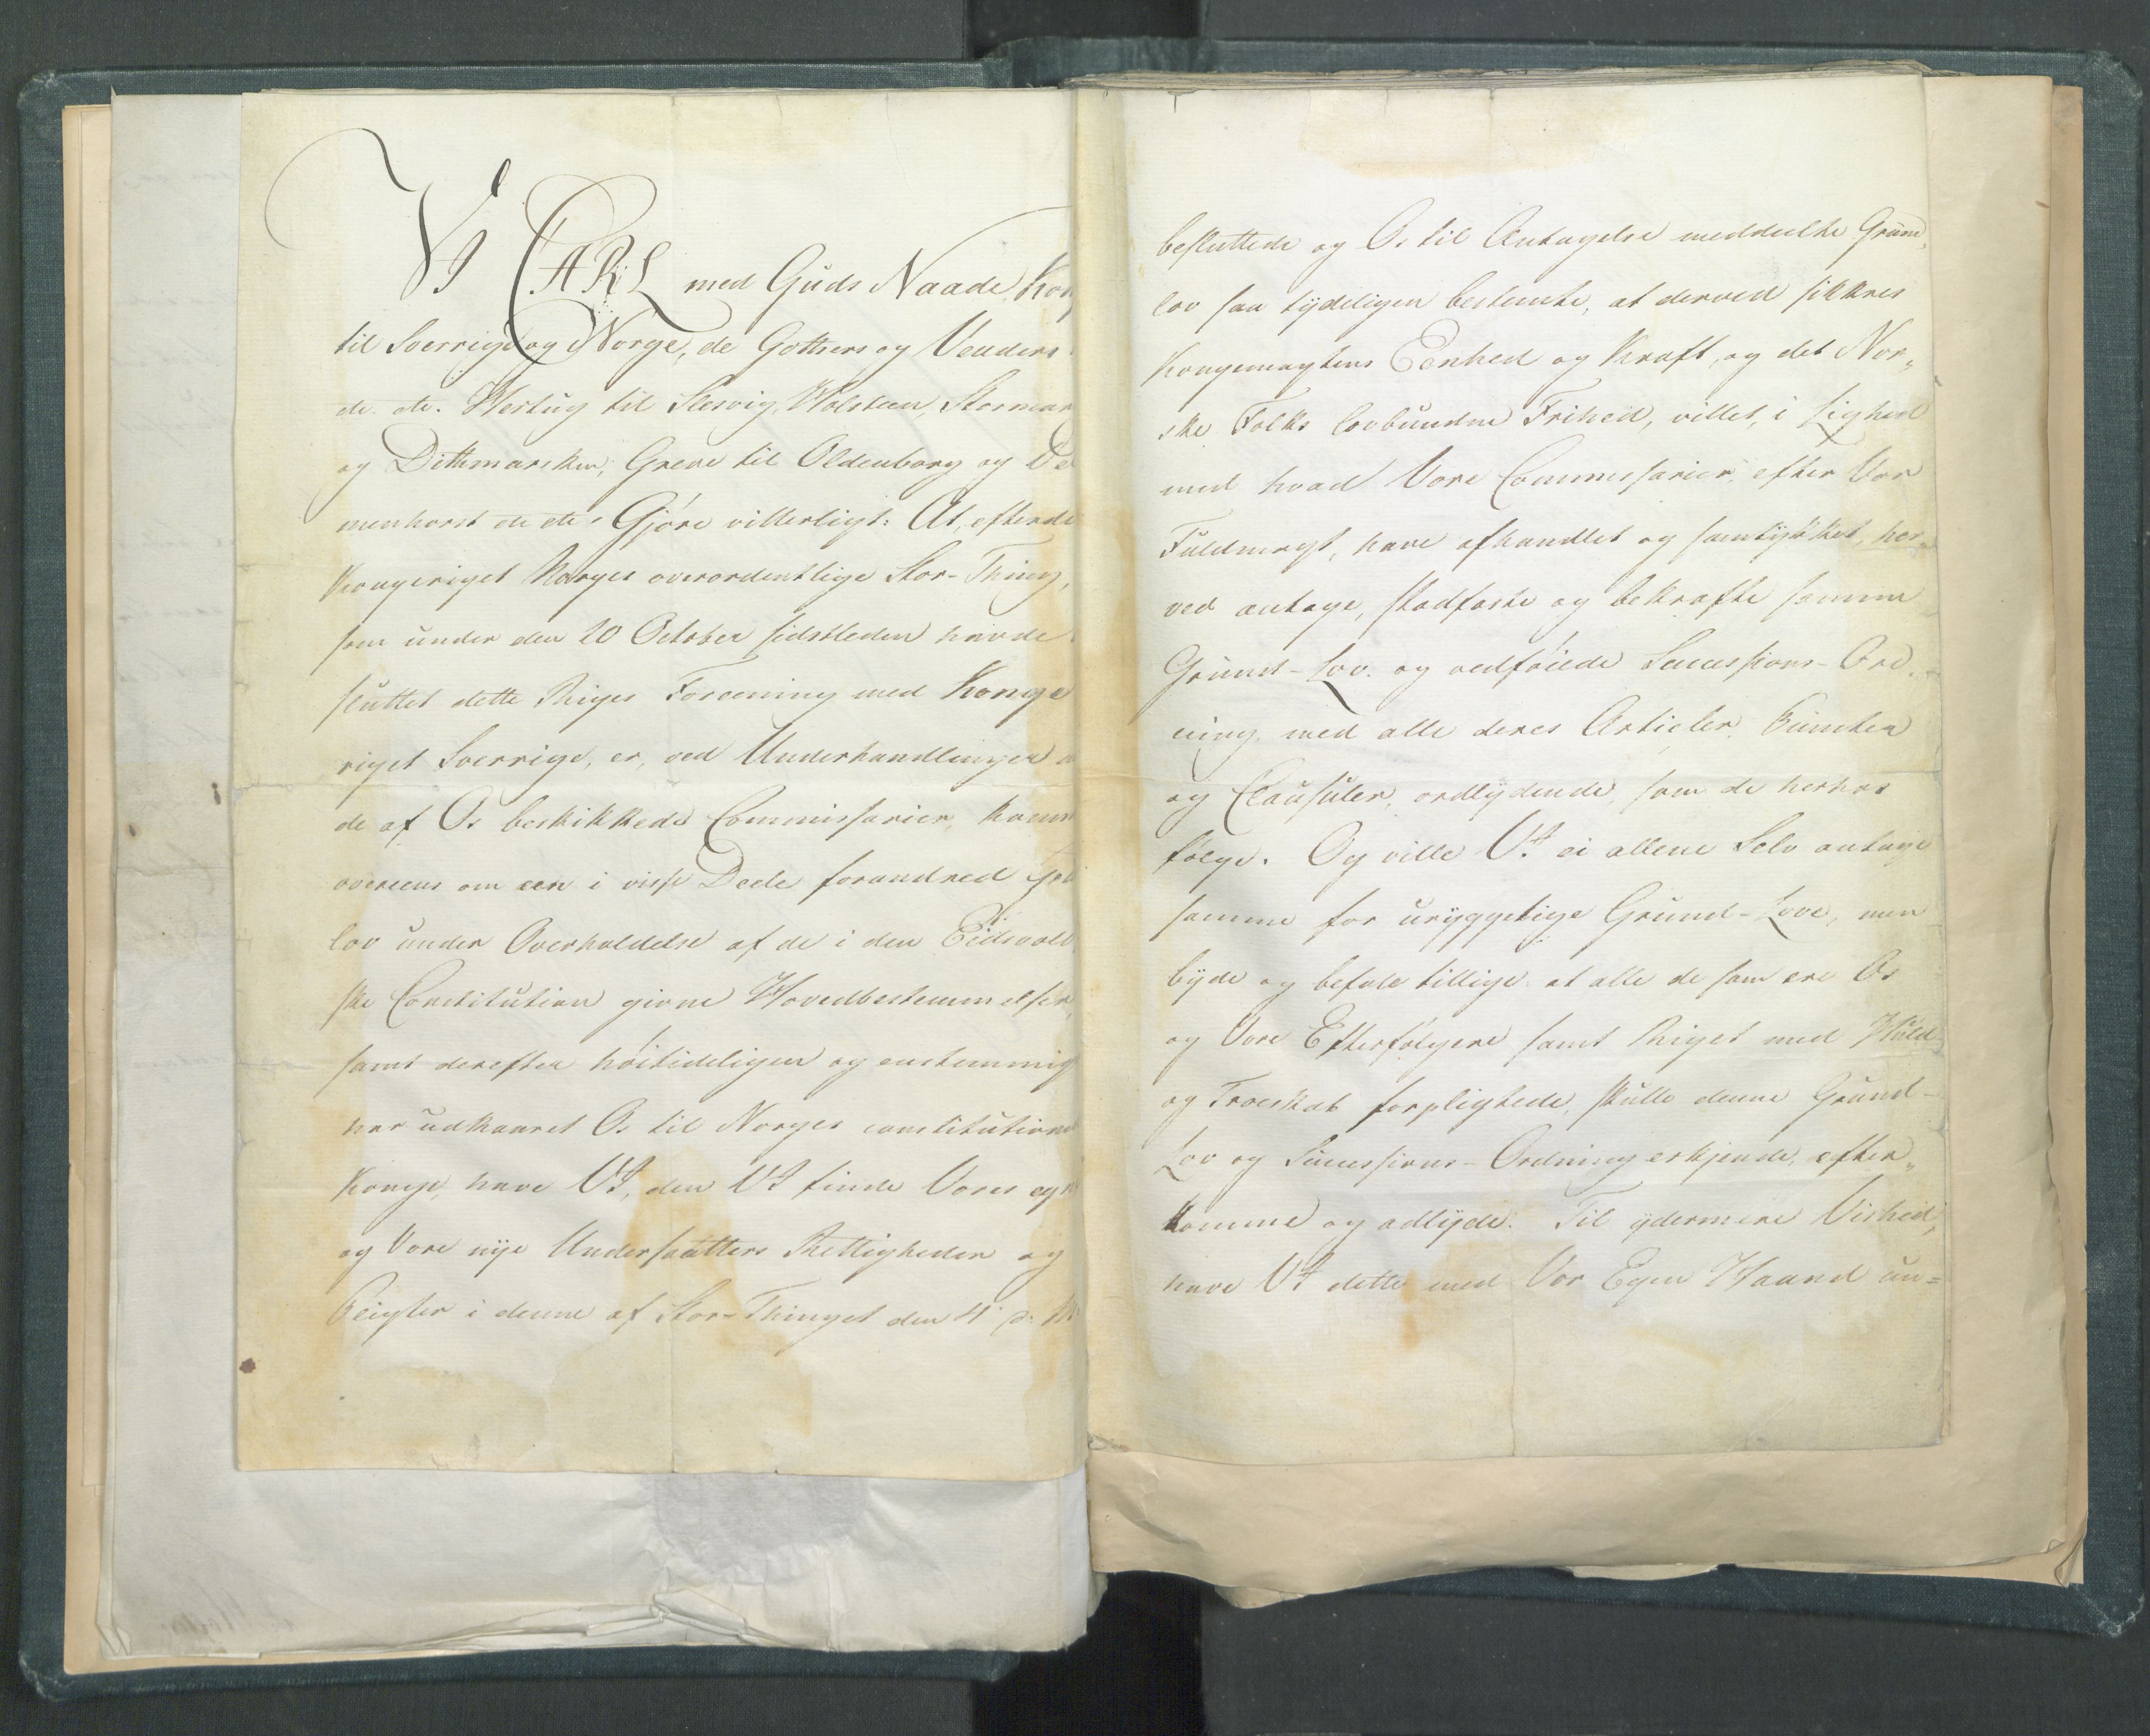 VI CARL med Guds Naade, Kon
til Sverrige og Norge, de Gothers og Venders
etc. etc. Hertug til Slesvig, Holsteen, Stormar
og Dithmarsken, Greve til Oldenborg og De
menhorst etc etc: Gjöre vitterligt: At, efterat
Kongeriget Norges overordentlige Stor-Thing,
som under den 20 October sidstleden havde
sluttet dette Riges Foreening med Konge
riget Sverrige, er, ved Underhandlinger
de af Os beskikkede Commissarier, kom
overeens om een i visse Dele forandred
lov under Overholdelse af de i den Eidsvold
ske Constitution givne Hovedbestemmelser,
samt derefter höitideligen og eenstemmig
har udkaaret Os til Norges constitution
Konge, have VI, den VI finde Vores eg
og Vore nye Undersaatters Rettigheder og
Pligter i denne af Stor-Thinget den 4 d: M
besluttede og Os til Antagelse meddeelte Grund,
lov saa tydeligen bestemte, at derved sikkres
Kongemagtens Eenhed og Kraft, og det Nor„
ske Folks lovbundne Frihed, villet, i Lighed
med hvad Vore Commissarier, efter Vor
Fuldmagt, have afhandlet og samtykket, her„
ved antage, stadfæste og bekræfte samme
Grund-Lov og vedföiede Successions-Ord-
ning med alle deres Articler, Puncter
og Clausuler, ordlydende, som de herhos
fölge. Og ville VI ei allene Selv antage
samme for uryggelige Grund-Love, men
byde og befale tillige at alle de som ere Os
og Vore Efterfölgere samt Riget med Huld
og Troeskab forpligtede, skulle denne Grund-
Lov og Successions-Ordning erkjende, efter„
komme og adlyde. Til ydermere Vished,
have VI dette med Vor Egen Haand un=